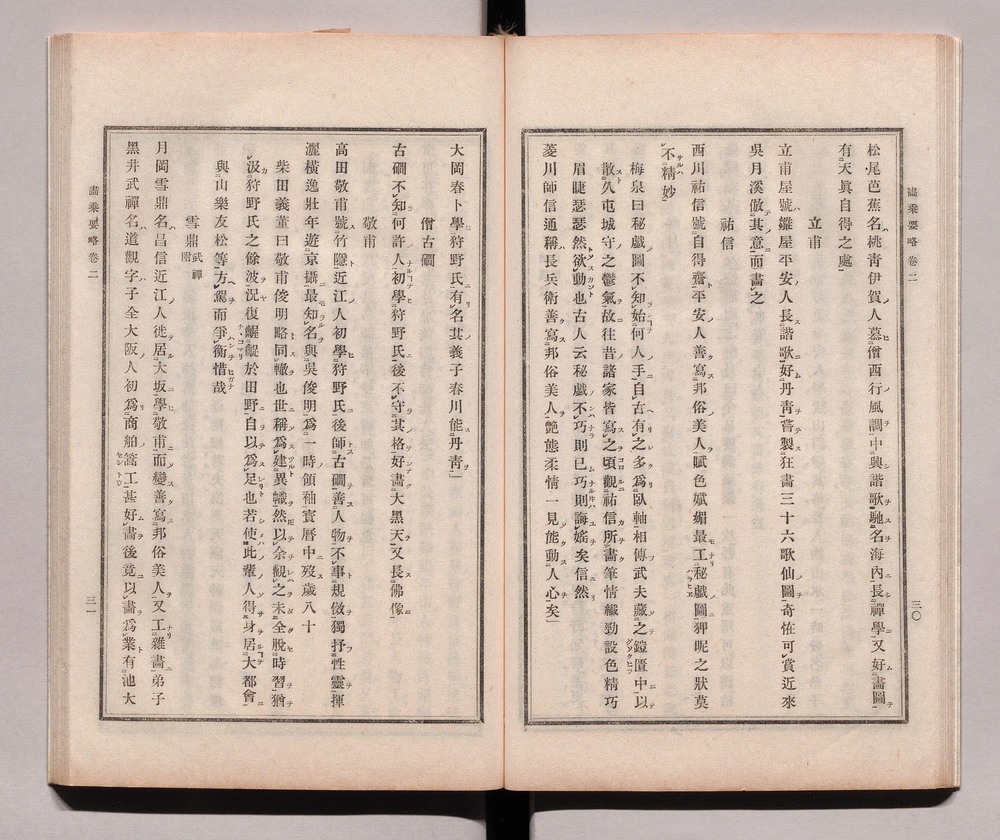 畫乘要略卷二
三〇
松尾芭蕉名桃青伊賀人慕僧西行風調中興諧歌馳名海內長禪學又好畫圖
有天眞自得之處
立甫
立甫屋號雛屋平安人長諧歌好丹靑嘗製狂畫三十六歌仙圖奇恠可賞近來
吳月溪倣其意而畫之
祐信
西川祐信號自得齋平安人善寫邦俗美人賦色嬪媚最工秘戲圖狎昵之狀莫
不精妙
梅泉曰秘戲圖不知始何人手自古有之多爲臥軸相傳武夫藏之鎧匱中以
散久屯城守之鬱氣故往昔諸家皆寫之頃觀祐信所畫筆情纖勁設色精巧
眉睫瑟瑟然欲動也古人云秘戲不巧則已巧則誨婬矣信然
菱川師信通稱長兵衛善寫邦俗美人艷態柔情一見能動人心矣
大岡春卜學狩野氏有名其義子春川能丹靑
僧古磵
古磵不知何許人初學狩野氏後不守其格好畫大黑天又長佛像
敬甫
高田敬甫號竹隱近江人初學狩野氏後師古磵善人物不事規倣獨抒性靈揮
灑橫逸壯年遊京攝最知名與吳俊明爲一時領袖寶曆中歿歲八十
柴田義董曰敬甫俊明略同轍也世稱爲建異幟然以余觀之未全脫時習猶
汲狩野氏之餘波況復齷齪於田野自以爲足也若使此輩人得身居大都會
與山樂友松等方駕而爭衡惜哉
雪鼎 武禪附
月岡雪鼎名昌信近江人徙居大坂學敬甫而變善寫邦俗美人又工雜畫弟子
黑井武禪名道觀字子全大阪人初爲商舶篙工甚好畫後竟以畫爲業有池大
畫乘要略卷二
三一